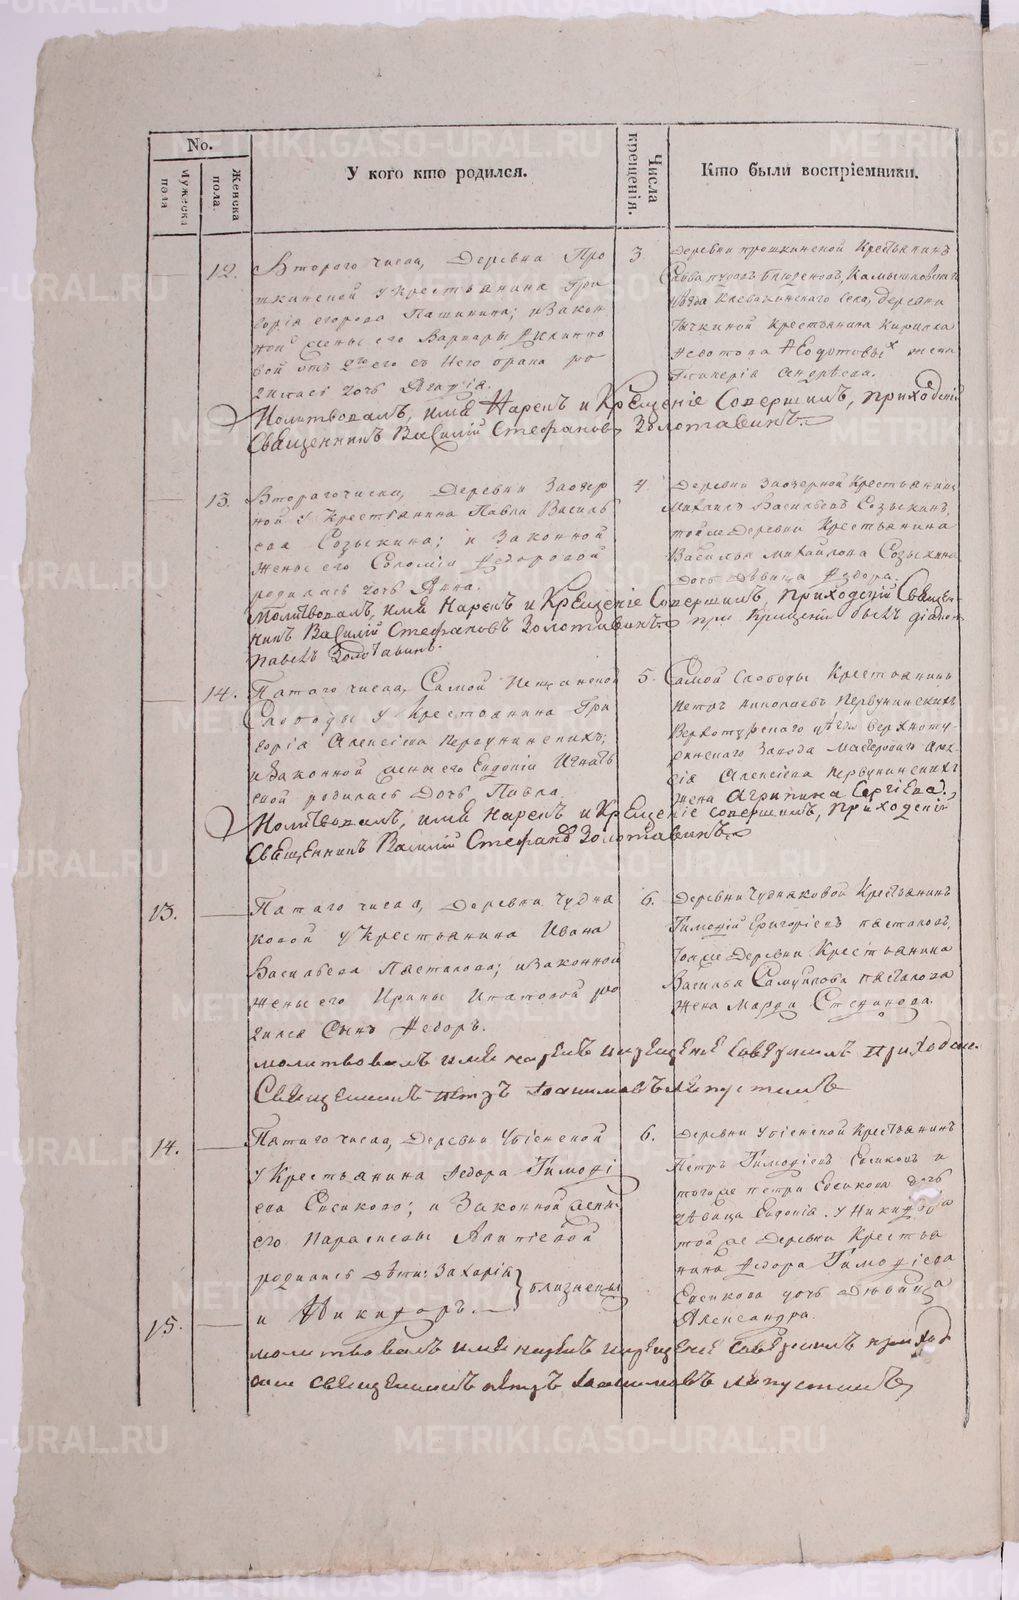 No.
Мужеска пола
Женска пола.
У кого кто родился.
Числа крещенія.
Кто были воспріемники.
12.
Втораго числа, Деревни Про
шкинской у крестьянина Гри
горія егорова Пашинина; и закон
ной жены его Варвары
родилась дочь
Молитвовалъ, имя Нарекъ и Крещеніе Совершилъ, приходскій
Священникъ Василій Стефановъ Золотавинъ.
3.
Деревни прошкинской Крестьянинъ
Камышловскаго
уѣзда Клевакинскаго Села, деревни
Бычкиной Крестьянина Кирилла
жена
Андрѣева.
13.
Втораго числа, Деревни Заозер
ной у крестьянина Павла Василь
ева Созыкина; и Законной
жены его Соломіи Федоровой
родилась дочь Анна.
Молитвовалъ, имя Нарекъ и Крещеніе Совершилъ приходскій Священ-
никъ Василій Стефановъ Золотавинъ. при Крещеніи былъ діаконъ
Павелъ Золотавинъ.
4
Деревни Заозерной Крестьянинъ
Михаилъ Васильевъ Созыкинъ,
той же Деревни Крестьянина
Василья Михайлова Созыкина
дочь дѣвица Федора.
14.
Пятаго числа, Самой
Слободы у Крестьянина Гри
горія Алексіева Первунинскихъ;
и Законной жены его Евдокіи Игнать
евой родилась Дочь Павла.
Молитвовалъ, имя нарекъ и Крещеніе совершилъ, приходскій
Священникъ Василій Стефановъ Золотавинъ.
5.
Самой слободы Крестьянинъ
Петръ Николаевъ Первунинскихъ
Верхотурскаго уѣзда верхноту-
ринскаго Завода Мастероваго Алек
сія Алексіева первунинскихъ
жена Агрипина Сергіева.
13.
Пятаго числа, Деревни Чудна
ковой у Крестьянина Ивана
Васильева Пасталова; и Законной
жены его Ирины Ипатовой ро
дился Сынъ Федоръ.
молитвовалъ имя нарекъ и крещеніе совершилъ приходскій
Священникъ петръ іоакимовъ ляпустинъ
6.
Деревни Чуднаковой Крестьянинъ
Тимофій Григоріевъ пасталовъ,
тойже Деревни Крестьянина
Василья Самуилова пасталова
жена Марфа
14.
Пятаго числа, Деревни Убіенской
у Крестьянина Федора Тимофі
ева Евсикова; и Законной жены
его Параскевы Алипіевой
родились дѣти: Захарій
и Никифоръ. } близнецы
15.
молитвовалъ имя нарекъ и крещеніе совершилъ приход
скій священникъ петръ іоакимовъ ляпустинъ
6.
Деревни Убіенской Крестьянинъ
Петръ Тимофіевъ Евсиковъ и
тогоже петра Евсикова дочь
дѣвица Евдокія. у Никифора
той же Деревни Крестья
нина Федора Тимофіева
Евсикова дочь дѣвица
Александра.
METRIKI.GASO-URAL.RU